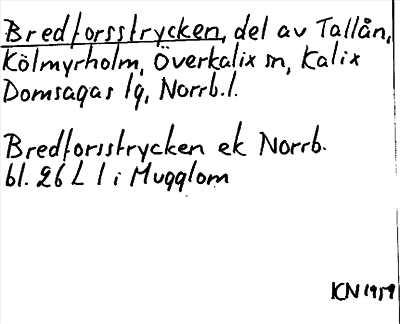 Bredforsstrycken, del av Tallån,
Kölmyrholm, Överkalix sn, Kalix
Domsagas tg, Norrb.l.
Bredforsstrycken ek Norrb.
bl. 26 L 1 i Mugglom
KN 1959